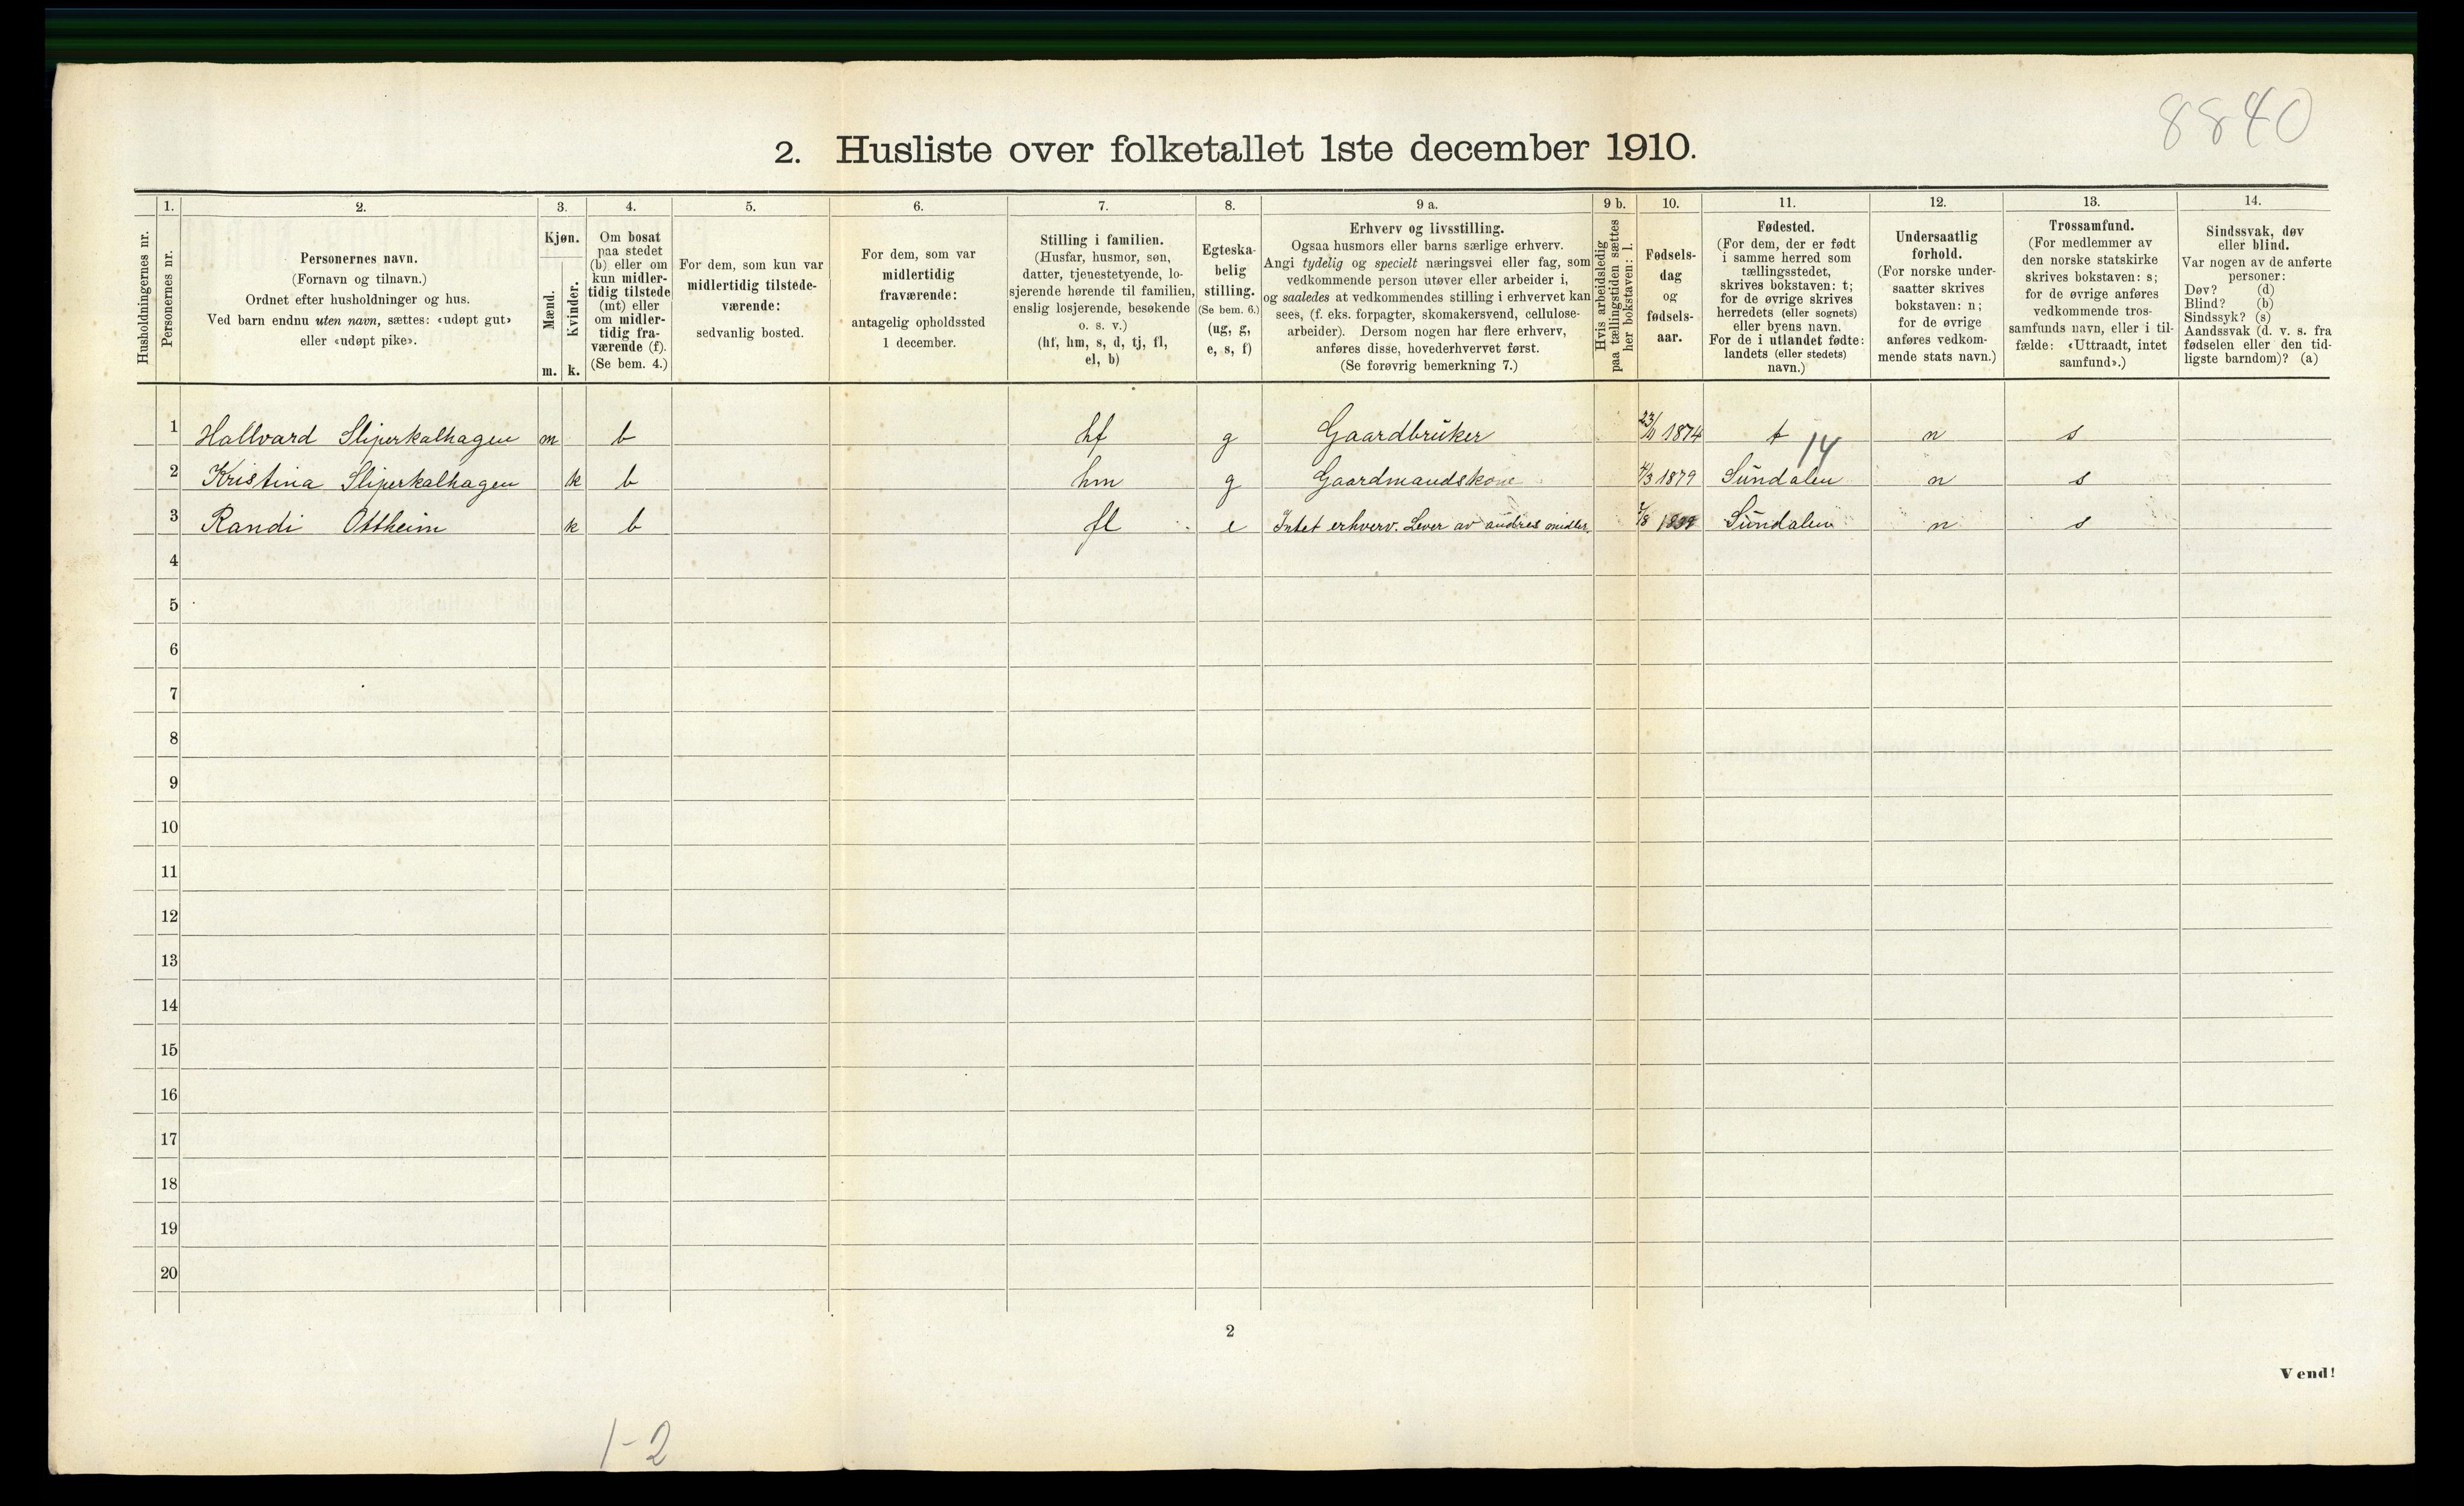 8840
2. Husliste over folketallet 1ste december 1910.
Husholdningernes nr.
1.
Personernes nr.
2.
Personernes navn.
(Fornavn og tilnavn.)
Ordnet efter husholdninger og hus.
Ved barn endnu uten navn, sættes: «udøpt gut»
eller «udøpt pike».
3.
Kjøn.
Mænd.
Kvinder.
m. k.
4.
Om bosat
paa stedet
(b) eller om
kun midler-
tidig tilstede
(mt) eller
om midler-
tidig fra-
værende (f).
(Se bem. 4.)
5.
For dem, som kun var
midlertidig tilstede-
værende:
sedvanlig bosted.
6.
For dem, som var
midlertidig
fraværende:
antagelig opholdssted
1 december.
7.
Stilling i familien.
(Husfar, husmor, søn,
datter, tjenestetyende, lo-
sjerende hørende til familien,
enslig losjerende, besøkende
o. s. v.)
(hf, hm, s, d, tj, fl,
el, b)
8.
Egteska-
belig
stilling.
(Se bem. 6.)
(ug, g,
e, s, f)
9 a.
Erhverv og livsstilling.
Ogsaa husmors eller barns særlige erhverv.
Angi tydelig og specielt næringsvei eller fag, som
vedkommende person utøver eller arbeider i,
og saaledes at vedkommendes stilling i erhvervet kan
sees, (f. eks. forpagter, skomakersvend, cellulose-
arbeider). Dersom nogen har flere erhverv,
anføres disse, hovederhvervet først.
(Se forøvrig bemerkning 7.)
9 b.
Hvis arbeidsledig
paa tællingstiden sættes
her bokstaven: l.
10.
Fødsels-
dag
og
fødsels-
aar.
11.
Fødested.
(For dem, der er født
i samme herred som
tællingsstedet,
skrives bokstaven: t;
for de øvrige skrives
herredets (eller sognets)
eller byens navn.
For de i utlandet fødte:
landets (eller stedets)
navn.)
12.
Undersaatlig
forhold.
(For norske under-
saatter skrives
bokstaven: n;
for de øvrige
anføres vedkom-
mende stats navn.)
13.
Trossamfund.
(For medlemmer av
den norske statskirke
skrives bokstaven: s;
for de øvrige anføres
vedkommende tros-
samfunds navn, eller i til-
fælde: «Uttraadt, intet
samfund».)
14.
Sindssvak, døv
eller blind.
Var nogen av de anførte
personer:
Døv? (d)
Blind? (b)
Sindssyk? (s)
Aandssvak (d. v. s. fra
fødselen eller den tid-
ligste barndom)? (a)
1 Hallvard Sliperkalhagen m b hf g Gaardbruker 23/11 1874 t n s
14
2 Kristina Sliperkalhagen k b hm g Gaardmandskone 4/3 1879 Sundalen n s
3 Randi Ottheim k b fl e Intet erhverv. Lever av andres midler. 7/8 Sundalen n s
4
5
6
7
8
9
10
11
12
13
14
15
16
17
18
19
20
2
Vend!
1-2